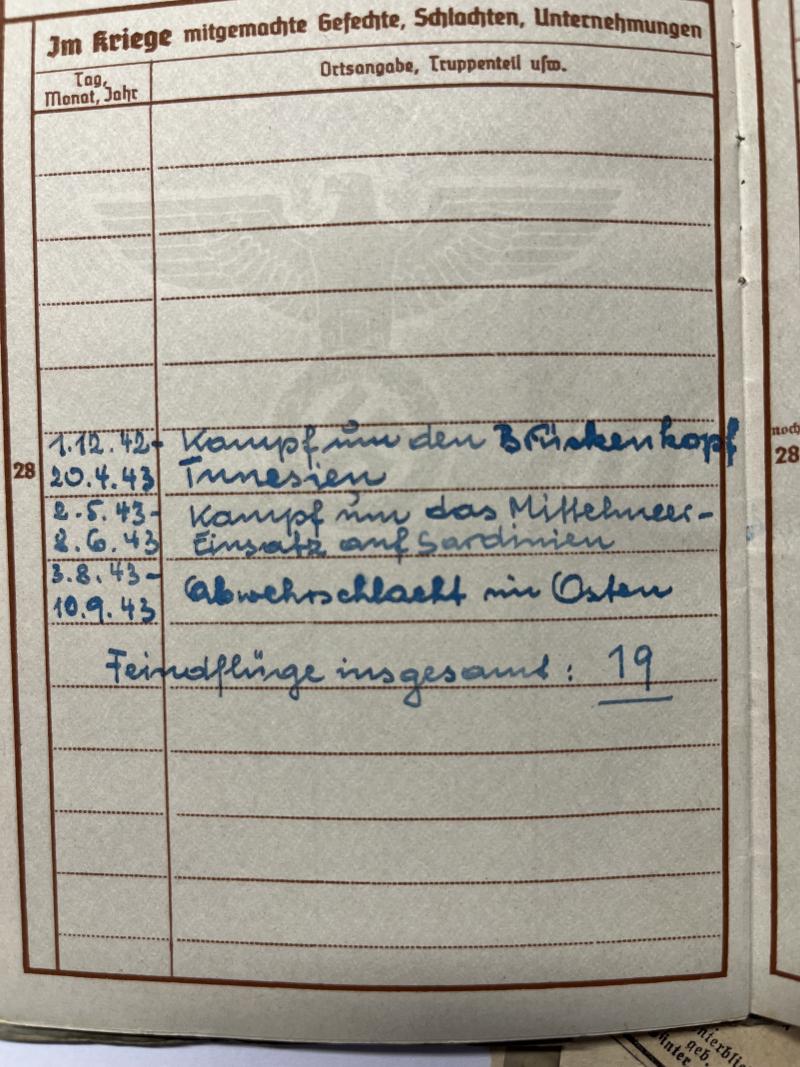 Im Kriege mitgemachte Gefechte, Schlachten, Unternehmungen
Tag, Monat, Jahr
Ortsangabe, Truppenteil usw.
1.12.42- Kampf um den Brückenkopf
28
20.4.43 Tunesien
2.5.43- Kampf um das Mittelmeer-
8.6.43 Einsatz auf Sardinien
3.8.43-
10.9.43 Abwehrschlacht im Osten
Feindflüge insgesamt: 19
noch
28
geb.